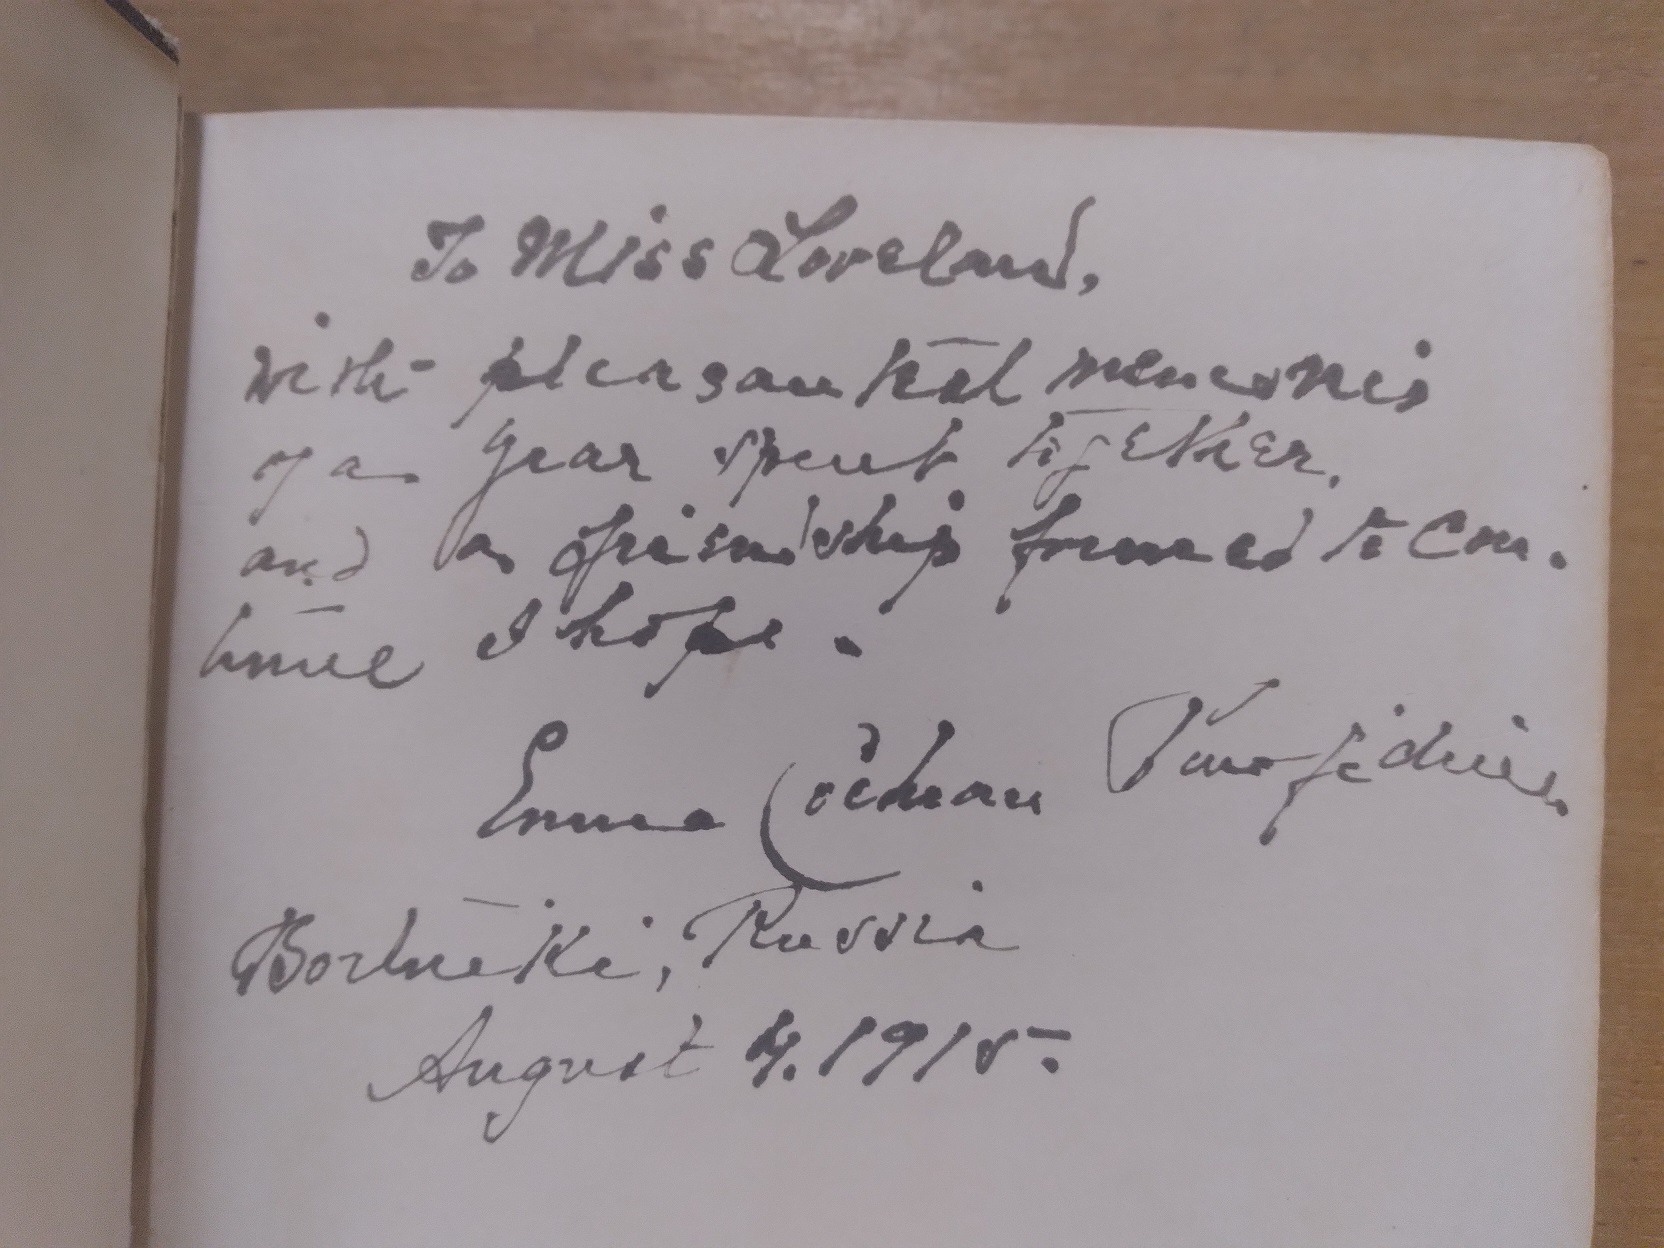 To Miss Loveland,
with pleasantest memories
of a year spent together,
and a friendship formed to con-
tinue I hope.
Emma Cochran
Russia
August 4. 1915.